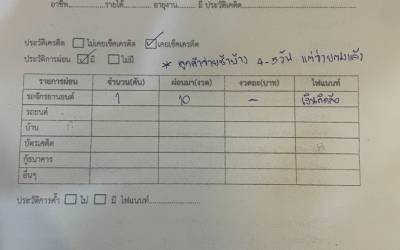 อาชีพ..............รายได้.............อายุงาน....... มี ประวัติเครดิต..............
ประวัติเครดิต ไม่เคยเช็คเครดิต ✓ เคยเช็คเครดิต
ประวัติการผ่อน ✓ มี ไม่มี * ลูกค้าจ่ายช้าบ้าง 4-5 วัน แต่จ่ายหมดแล้ว
รายการผ่อน จำนวน(คัน) ผ่อนมา(งวด) งวดละ(บาท) ไฟแนนท์
รถจักรยานยนต์ 1 10 -
รถยนต์
บ้าน
บัตรเคดิต
กู้ธนาคาร
อื่นๆ
ประวัติการค้ำ ไม่ มี ไฟแนนท์..............